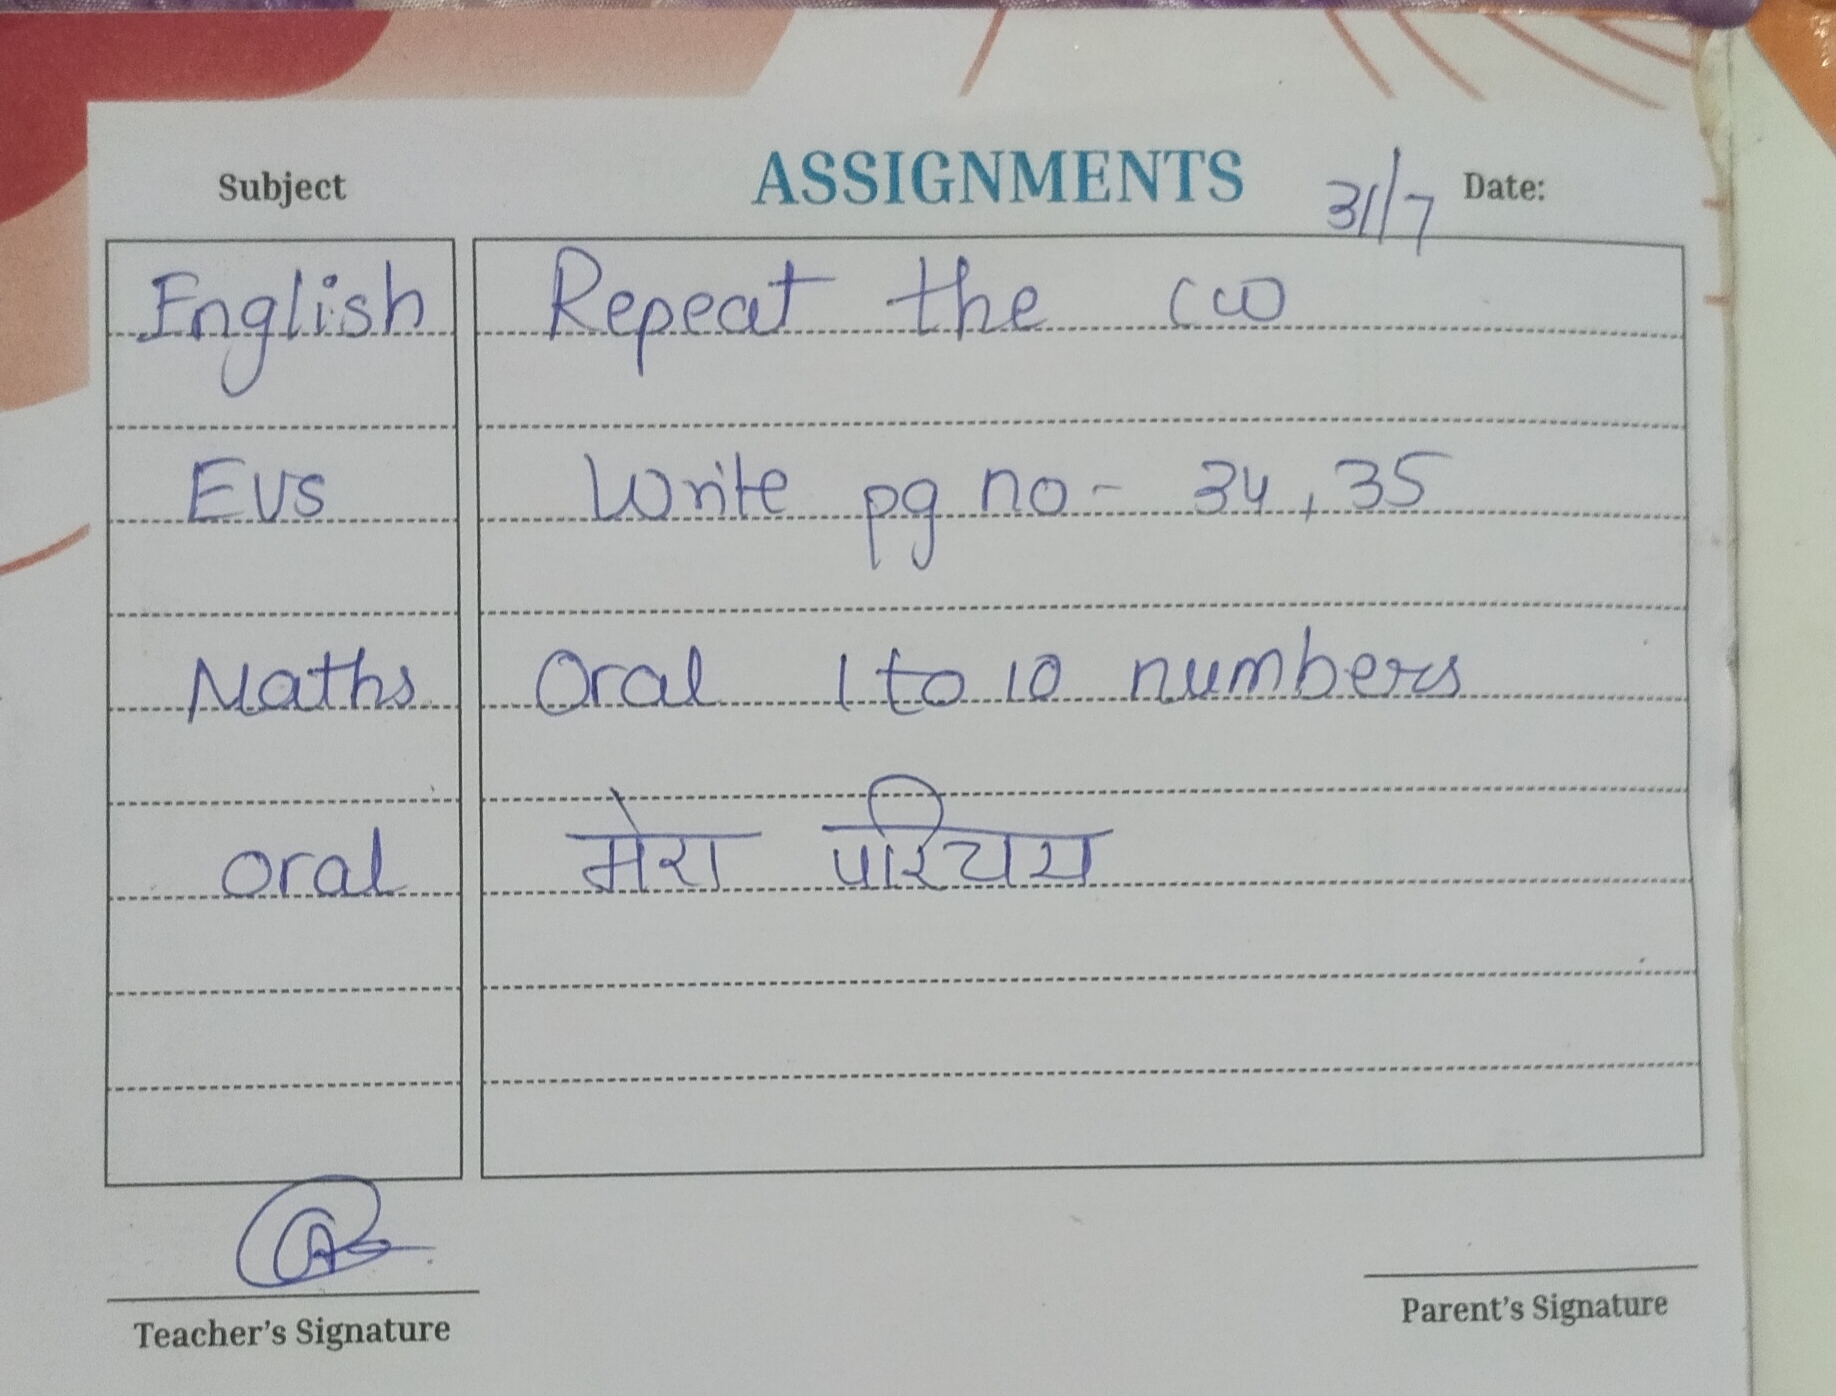 Subject ASSIGNMENTS 31/7 Date:
English Repeat the cw
EVS Write pg no - 34, 35
Maths Oral 1 to 10 numbers
oral मेरा परिचय
Teacher's Signature Parent's Signature